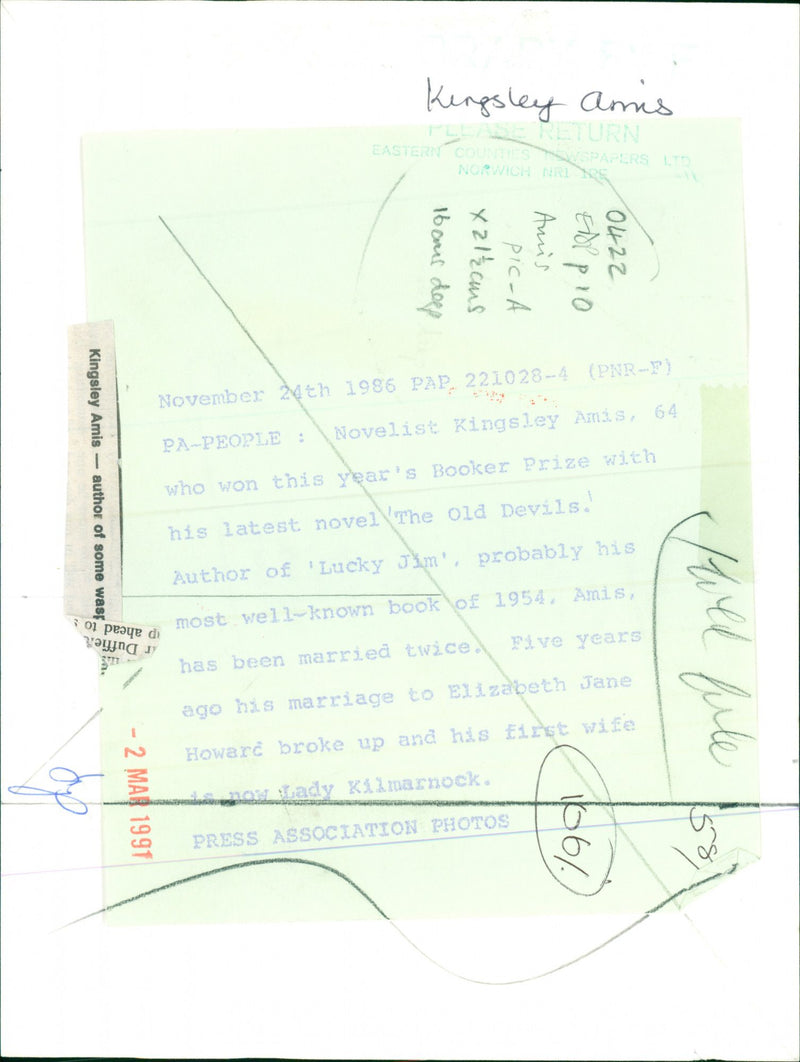 Kingsley Amis
PLEASE RETURN
EASTERN COUNTIES NEWSPAPERS LTD
NORWICH NR1 1RE
0422
EDP p10
Amis
pic-A
x 21½cms
16cms deep
Kingsley Amis — author of some
up ahead to
r Duffie
November 24th 1986 PAP 221028-4 (PNR-F)
PA-PEOPLE : Novelist Kingsley Amis, 64
who won this year's Booker Prize with
his latest novel 'The Old Devils.'
Author of 'Lucky Jim', probably his
most well-known book of 1954, Amis,
has been married twice. Five years
ago his marriage to Elizabeth Jane
Howard broke up and his first wife
is now Lady Kilmarnock.
PRESS ASSOCIATION PHOTOS
- 2 MAR 1991
106%
58